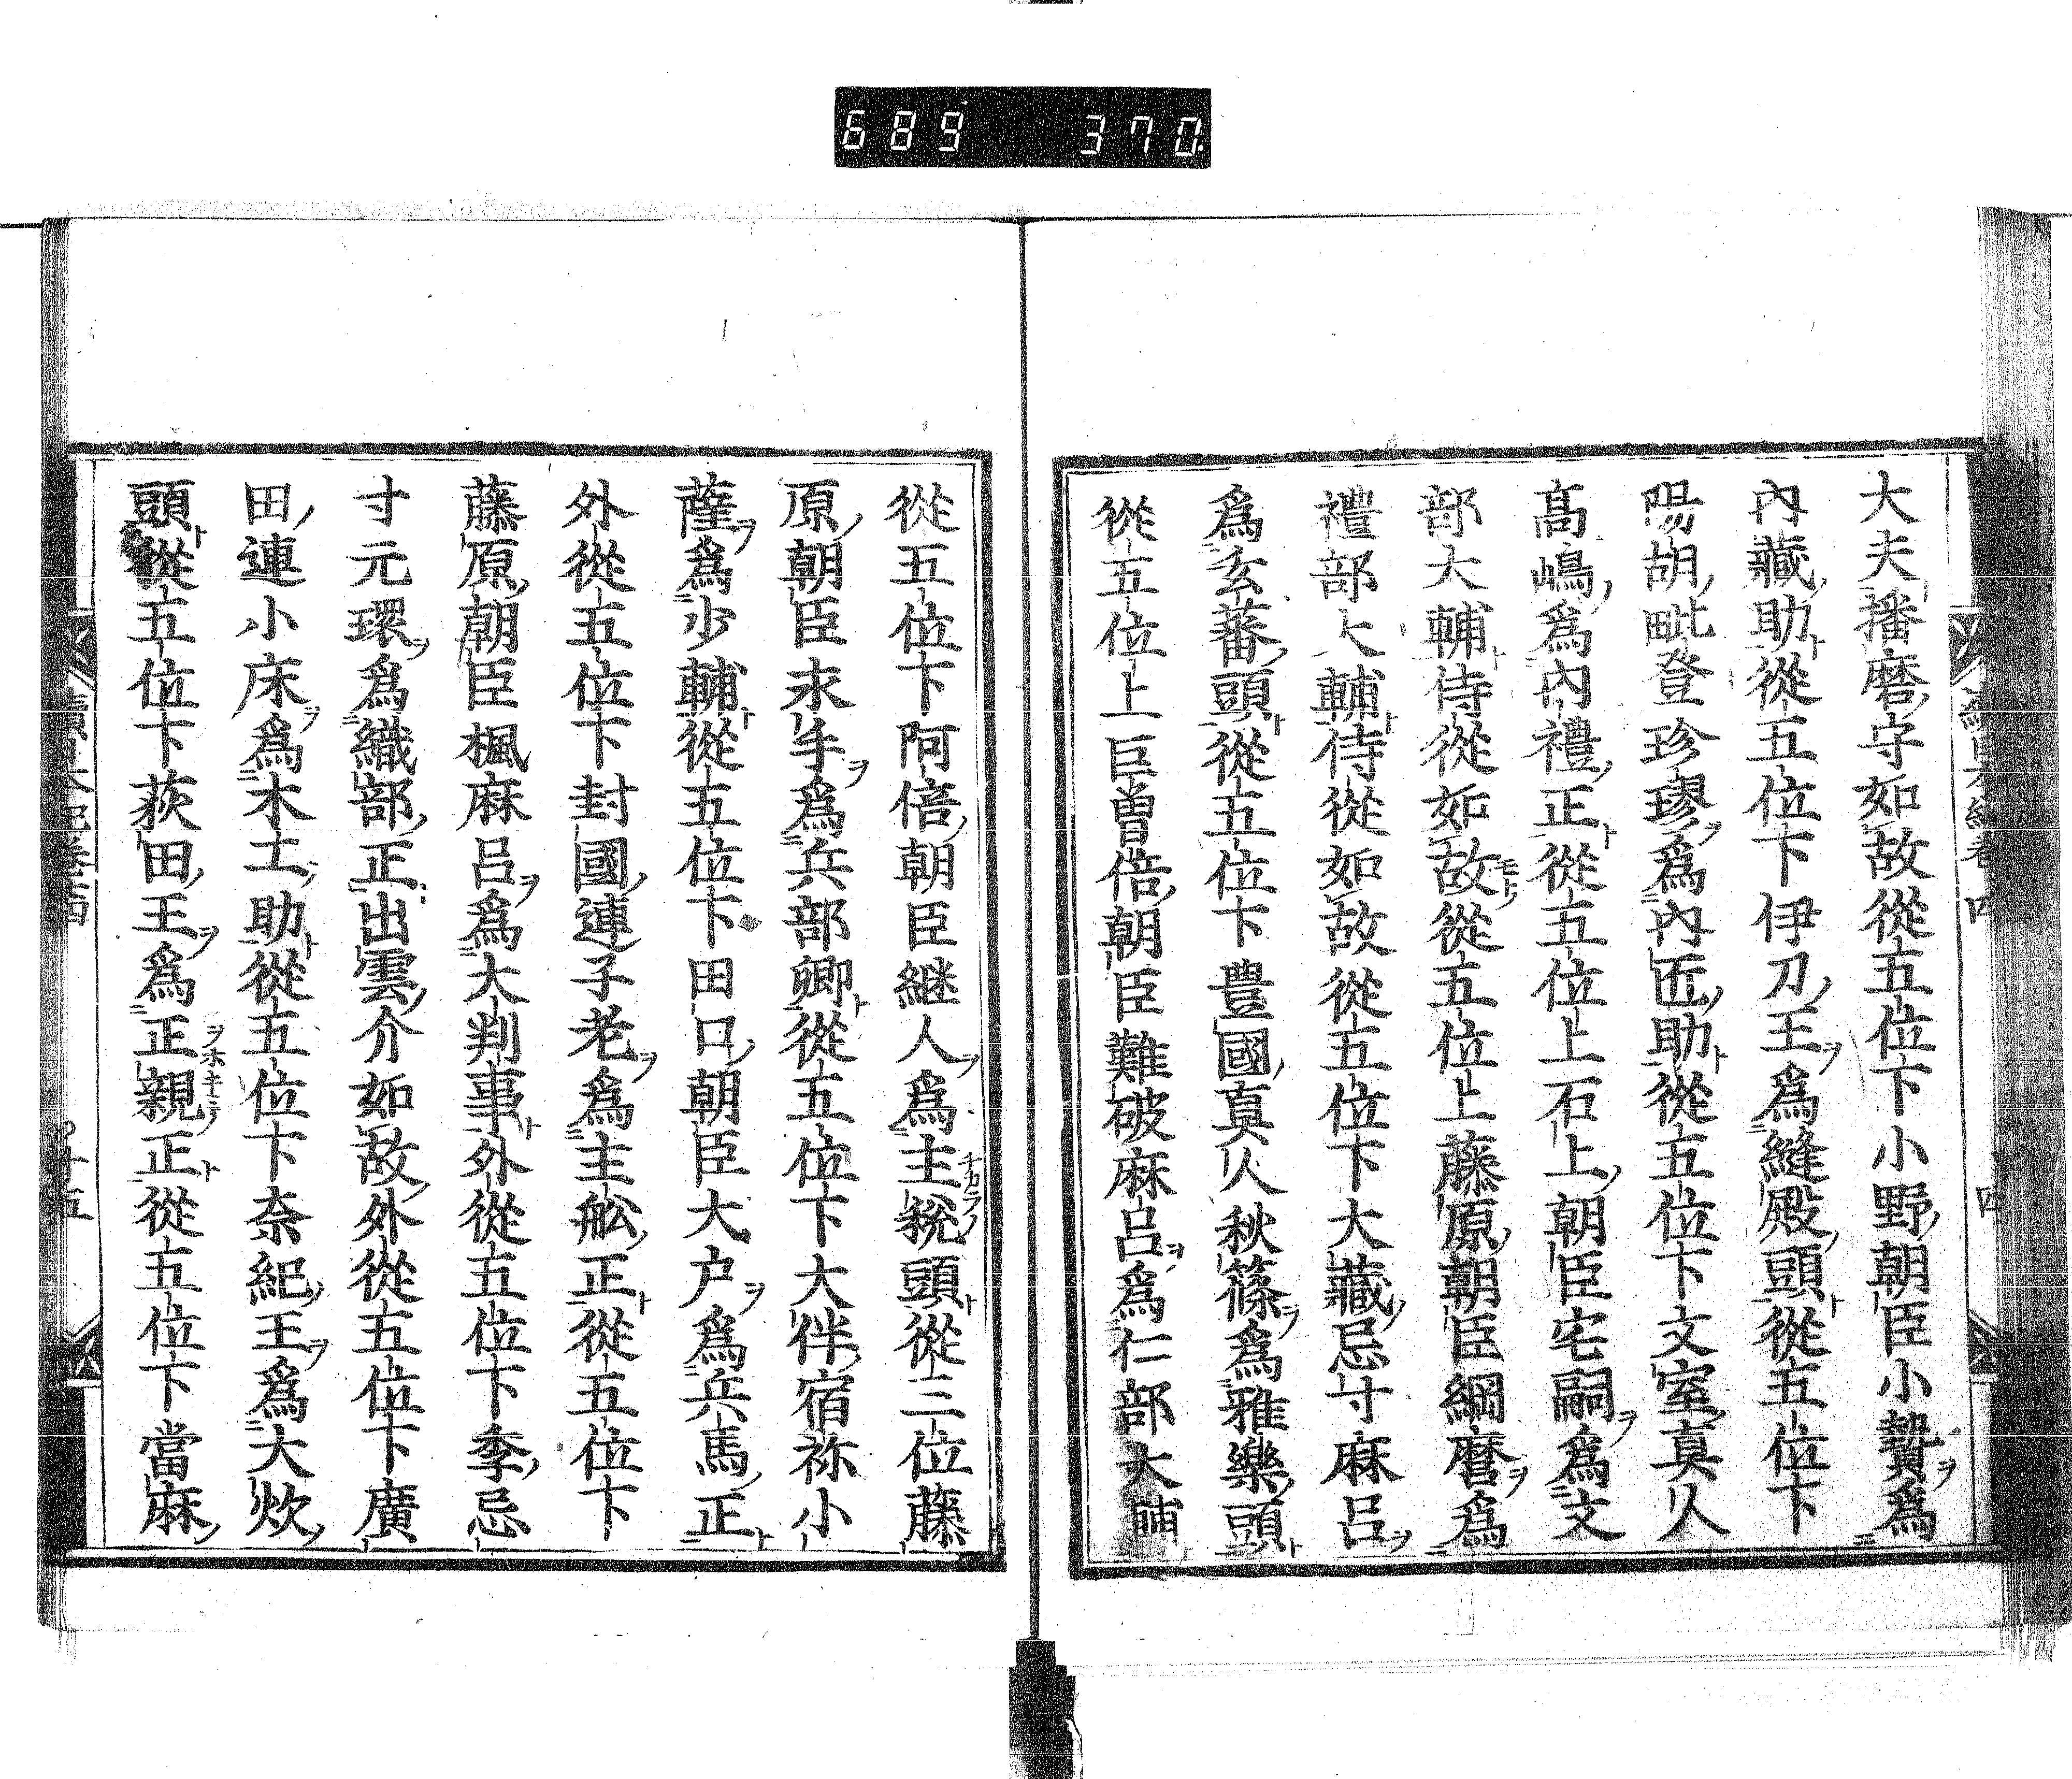 689 370
大夫播磨守如故從五位下小野朝臣小贄爲
內藏助從五位下伊刀王爲縫殿頭從五位下
陽胡毗登珍璆爲內匠助從五位下文室真人
髙嶋爲內禮正從五位上石上朝臣宅嗣爲文
部大輔侍從如故從五位上藤原朝臣綱麿爲
禮部大輔侍從如故從五位下大藏忌寸麻呂
爲玄蕃頭從五位下豊國真人秋篠爲雅樂頭
從五位上巨曽倍朝臣難破麻呂爲仁部大輔
從五位下阿倍朝臣継人爲主稅頭從三位藤
原朝臣永手爲兵部卿從五位下大伴宿祢小
薩爲少輔從五位下田口朝臣大户爲兵馬正
外從五位下封國連子老爲主舩正從五位下
藤原朝臣楓麻呂爲大判事外從五位下季忌
寸元環爲織部正出雲介如故外從五位下廣
田連小床爲木工助從五位下奈紀王爲大炊
頭從五位下荻田王爲正親正從五位下當麻